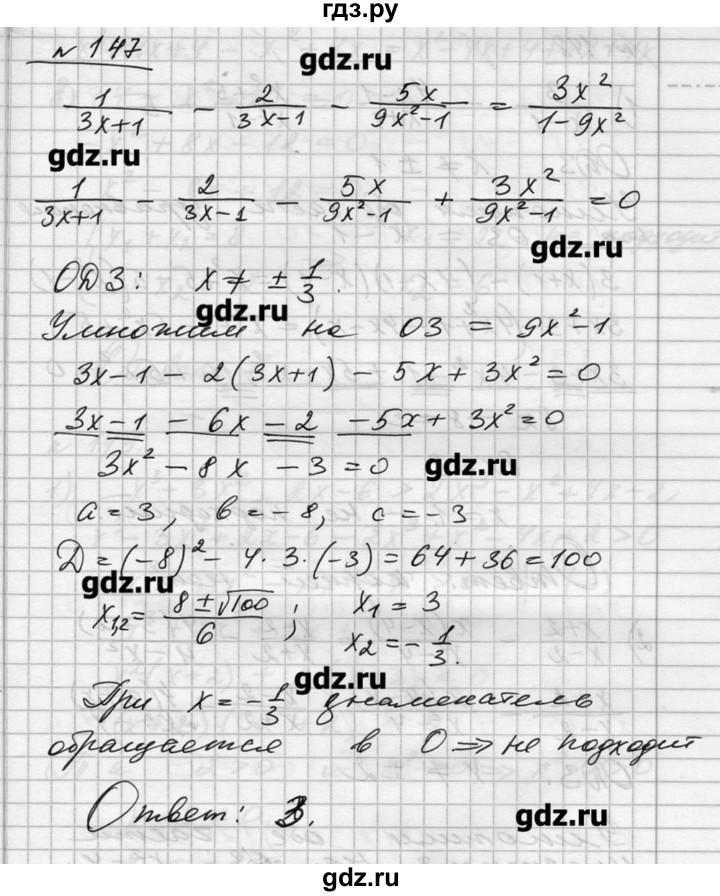 гдз.ру
№ 147
gdz.ru
1/(3x+1) - 2/(3x-1) - 5x/(9x²-1) = 3x²/(1-9x²)
gdz.ru
1/(3x+1) - 2/(3x-1) - 5x/(9x²-1) + 3x²/(9x²-1) = 0
gdz.ru
ОДЗ: x ≠ ± 1/3.
gdz.ru
Умножим на ОЗ = 9x²-1
3x-1 - 2(3x+1) - 5x + 3x² = 0
3x-1 - 6x - 2 - 5x + 3x² = 0
3x² - 8x - 3 = 0
gdz.ru
a = 3, b = -8, c = -3
Д = (-8)² - 4·3·(-3) = 64 + 36 = 100
gdz.ru
x₁,₂ = (8 ± √100)/6 ; x₁ = 3
x₂ = - 1/3.
gdz.ru
При x = - 1/3 знаменатель
обращается в 0 => не подходит
Ответ: 3.
gdz.ru
gdz.ru